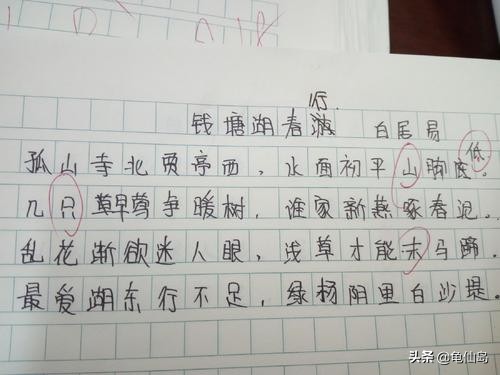 行.
钱塘湖春游 白居易
低
孤山寺北贾亭西，水面初平山脚底。
几只早莺争暖树，谁家新燕啄春泥。
乱花渐欲迷人眼，浅草才能末马蹄。
最爱湖东行不足，绿杨阴里白沙堤。
头条@龟仙岛